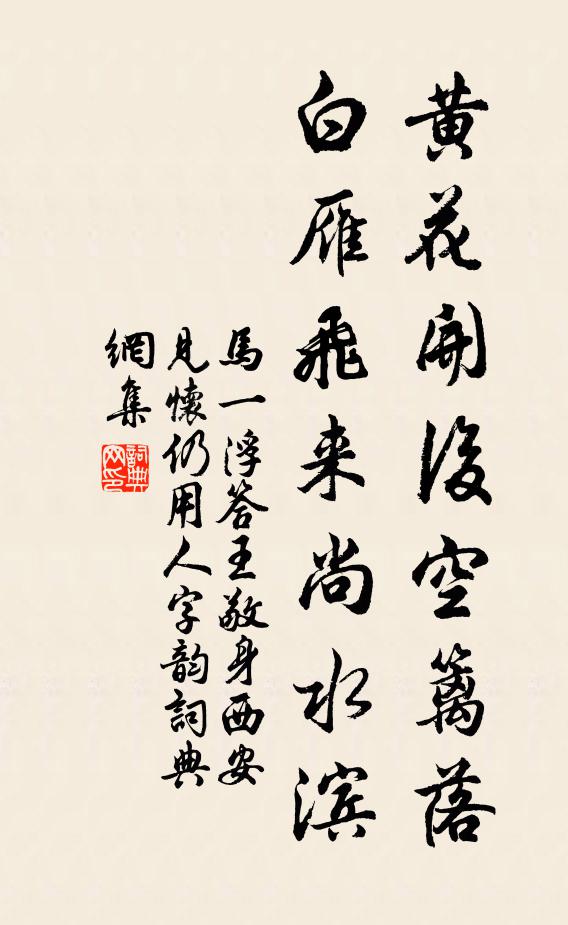 黄花開後空籬落
白雁飛来尚水滨
馬一浮答王敬身西安
見懷仍用人字韵詞典
網集
詞典
网印